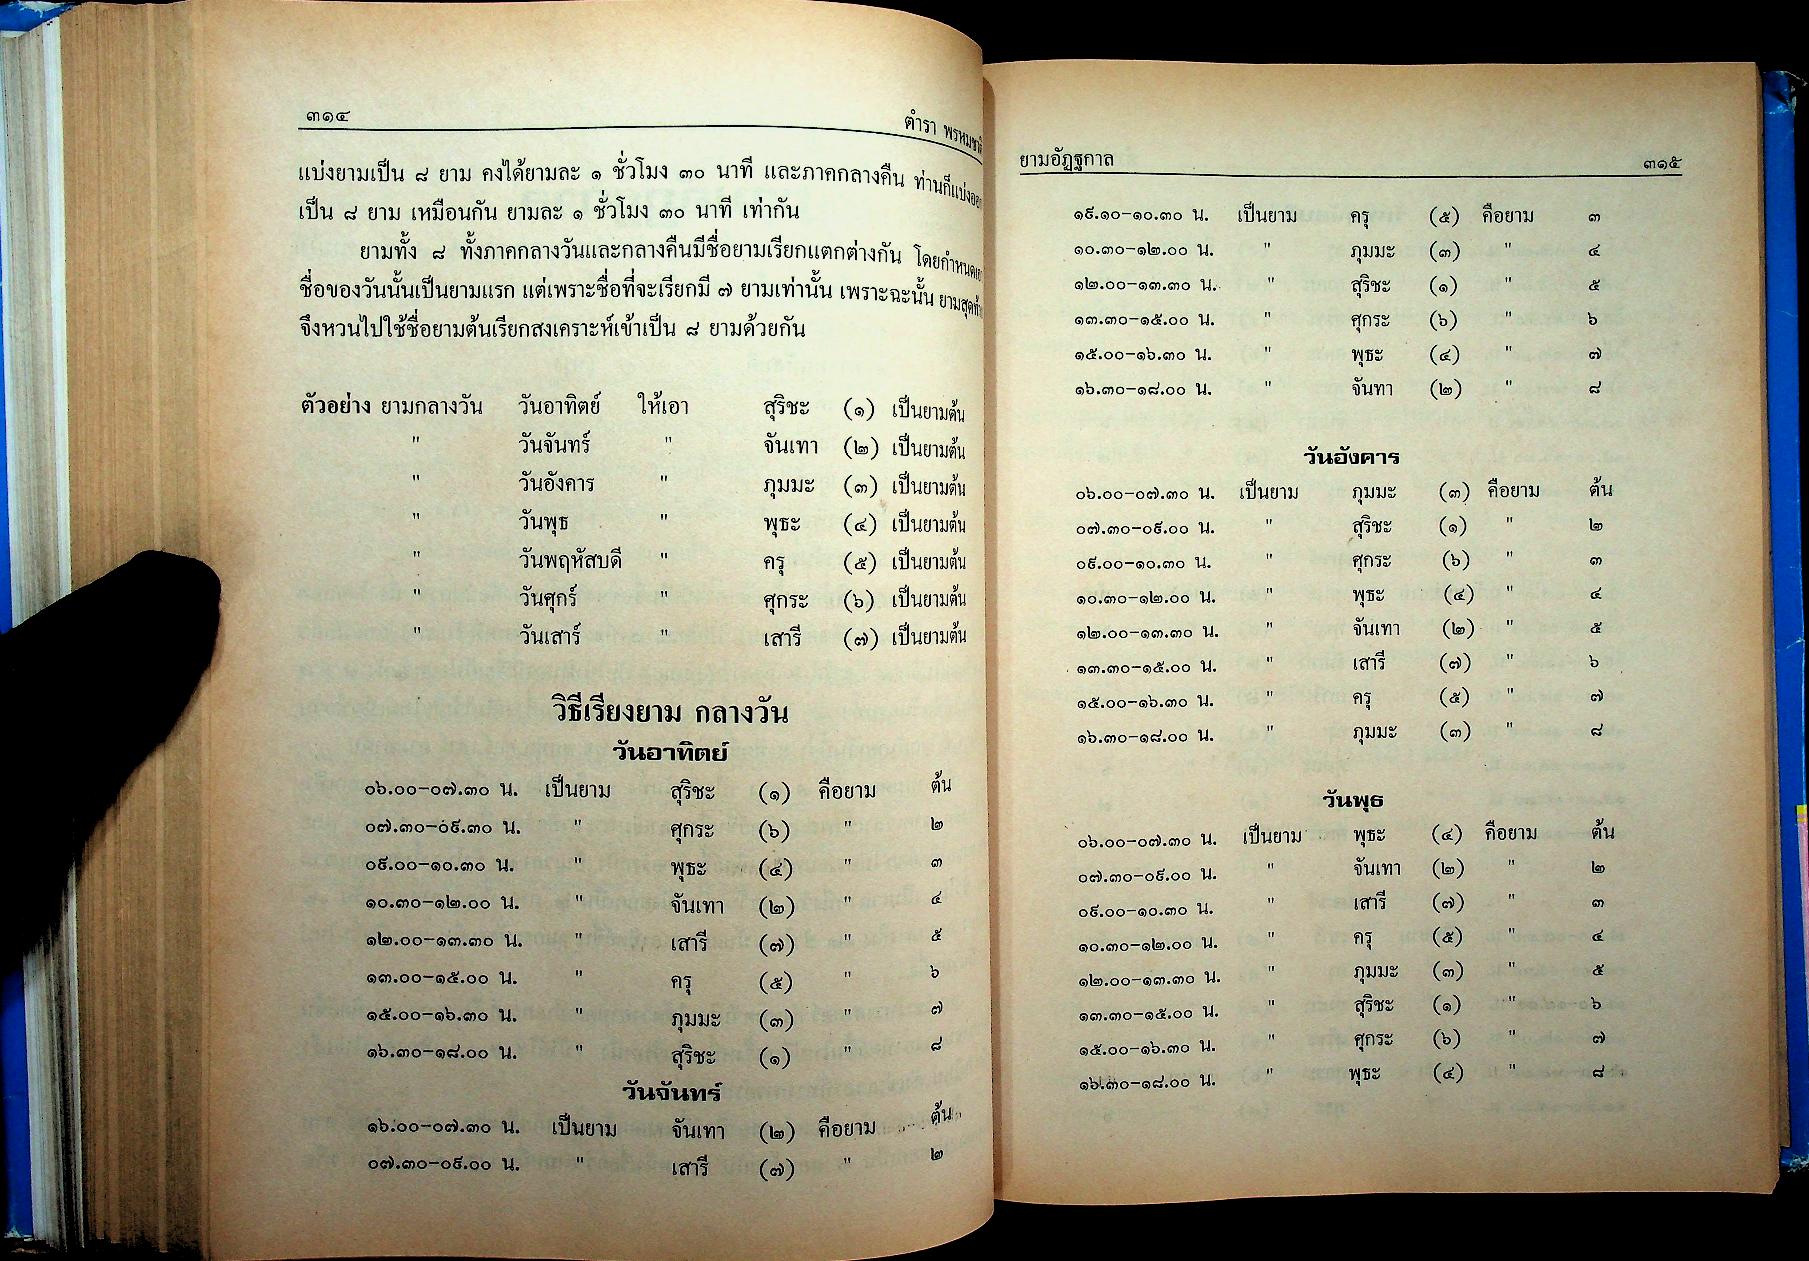 ๓๑๔ ตำรา พรหมชาติ
แบ่งยามเป็น ๘ ยาม คงได้ยามละ ๑ ชั่วโมง ๓๐ นาที และภาคกลางคืน ท่านก็แบ่งออก
เป็น ๘ ยาม เหมือนกัน ยามละ ๑ ชั่วโมง ๓๐ นาที เท่ากัน
ยามทั้ง ๘ ทั้งภาคกลางวันและกลางคืนมีชื่อยามเรียกแตกต่างกัน โดยกำหนดเอา
ชื่อของวันนั้นเป็นยามแรก แต่เพราะชื่อที่จะเรียกมี ๗ ยามเท่านั้น เพราะฉะนั้น ยามสุดท้าย
จึงหวนไปใช้ชื่อยามต้นเรียกสงเคราะห์เข้าเป็น ๘ ยามด้วยกัน
ตัวอย่าง ยามกลางวัน วันอาทิตย์ ให้เอา สุริชะ (๑) เป็นยามต้น
" วันจันทร์ " จันเทา (๒) เป็นยามต้น
" วันอังคาร " ภุมมะ (๓) เป็นยามต้น
" วันพุธ " พุธะ (๔) เป็นยามต้น
" วันพฤหัสบดี " ครุ (๕) เป็นยามต้น
" วันศุกร์ " ศุกระ (๖) เป็นยามต้น
" วันเสาร์ " เสารี (๗) เป็นยามต้น
วิธีเรียงยาม กลางวัน
วันอาทิตย์
๐๖.๐๐-๐๗.๓๐ น. เป็นยาม สุริชะ (๑) คือยาม ต้น
๐๗.๓๐-๐๙.๓๐ น. " ศุกระ (๖) " ๒
๐๙.๐๐-๑๐.๓๐ น. " พุธะ (๔) " ๓
๑๐.๓๐-๑๒.๐๐ น. " จันเทา (๒) " ๔
๑๒.๐๐-๑๓.๓๐ น. " เสารี (๗) " ๕
๑๓.๐๐-๑๕.๐๐ น. " ครุ (๕) " ๖
๑๕.๐๐-๑๖.๓๐ น. " ภุมมะ (๓) " ๗
๑๖.๓๐-๑๘.๐๐ น. " สุริชะ (๑) " ๘
วันจันทร์
๑๖.๐๐-๐๗.๓๐ น. เป็นยาม จันเทา (๒) คือยาม ต้น
๐๗.๓๐-๐๙.๐๐ น. " เสารี (๗) " ๒
ยามอัฏฐกาล ๓๑๕
๑๙.๑๐-๑๐.๓๐ น. เป็นยาม ครุ (๕) คือยาม ๓
๑๐.๓๐-๑๒.๐๐ น. " ภุมมะ (๓) " ๔
๑๒.๐๐-๑๓.๓๐ น. " สุริชะ (๑) " ๕
๑๓.๓๐-๑๕.๐๐ น. " ศุกระ (๖) " ๖
๑๕.๐๐-๑๖.๓๐ น. " พุธะ (๔) " ๗
๑๖.๓๐-๑๘.๐๐ น. " จันทา (๒) " ๘
วันอังคาร
๐๖.๐๐-๐๗.๓๐ น. เป็นยาม ภุมมะ (๓) คือยาม ต้น
๐๗.๓๐-๐๙.๐๐ น. " สุริชะ (๑) " ๒
๐๙.๐๐-๑๐.๓๐ น. ศุกระ (๖) " ๓
๑๐.๓๐-๑๒.๐๐ น. " พุธะ (๔) " ๔
๑๒.๐๐-๑๓.๓๐ น. " จันเทา (๒) " ๕
๑๓.๓๐-๑๕.๐๐ น. " เสารี (๗) " ๖
๑๕.๐๐-๑๖.๓๐ น. " ครุ (๕) " ๗
๑๖.๓๐-๑๘.๐๐ น. " ภุมมะ (๓) " ๘
วันพุธ
๐๖.๐๐-๐๗.๓๐ น. เป็นยาม พุธะ (๔) คือยาม ต้น
๐๗.๓๐-๐๙.๐๐ น. " จันเทา (๒) " ๒
๐๙.๐๐-๑๐.๓๐ น. " เสารี (๗) " ๓
๑๐.๓๐-๑๒.๐๐ น. " ครุ (๕) " ๔
๑๒.๐๐-๑๓.๓๐ น. " ภุมมะ (๓) " ๕
๑๓.๓๐-๑๕.๐๐ น. " สุริชะ (๑) " ๖
๑๕.๐๐-๑๖.๓๐ น. " ศุกระ (๖) " ๗
๑๖.๓๐-๑๘.๐๐ น. " พุธะ (๔) " ๘